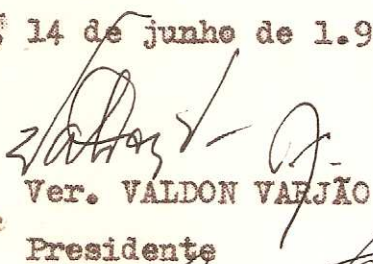 14 de junho de 1.9
Ver. VALDON VARJÃO
Presidente